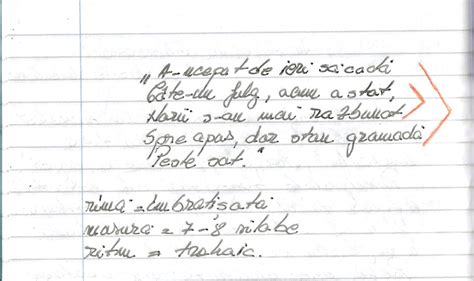 „A-nceput de ieri să cadă
Câte-un fulg, acum a stat,
Norii s-au mai răzbunat
Spre apus, dar stau grămadă
Peste sat."
rimă = îmbrățișată
măsură = 7-8 silabe
ritm = trohaic.